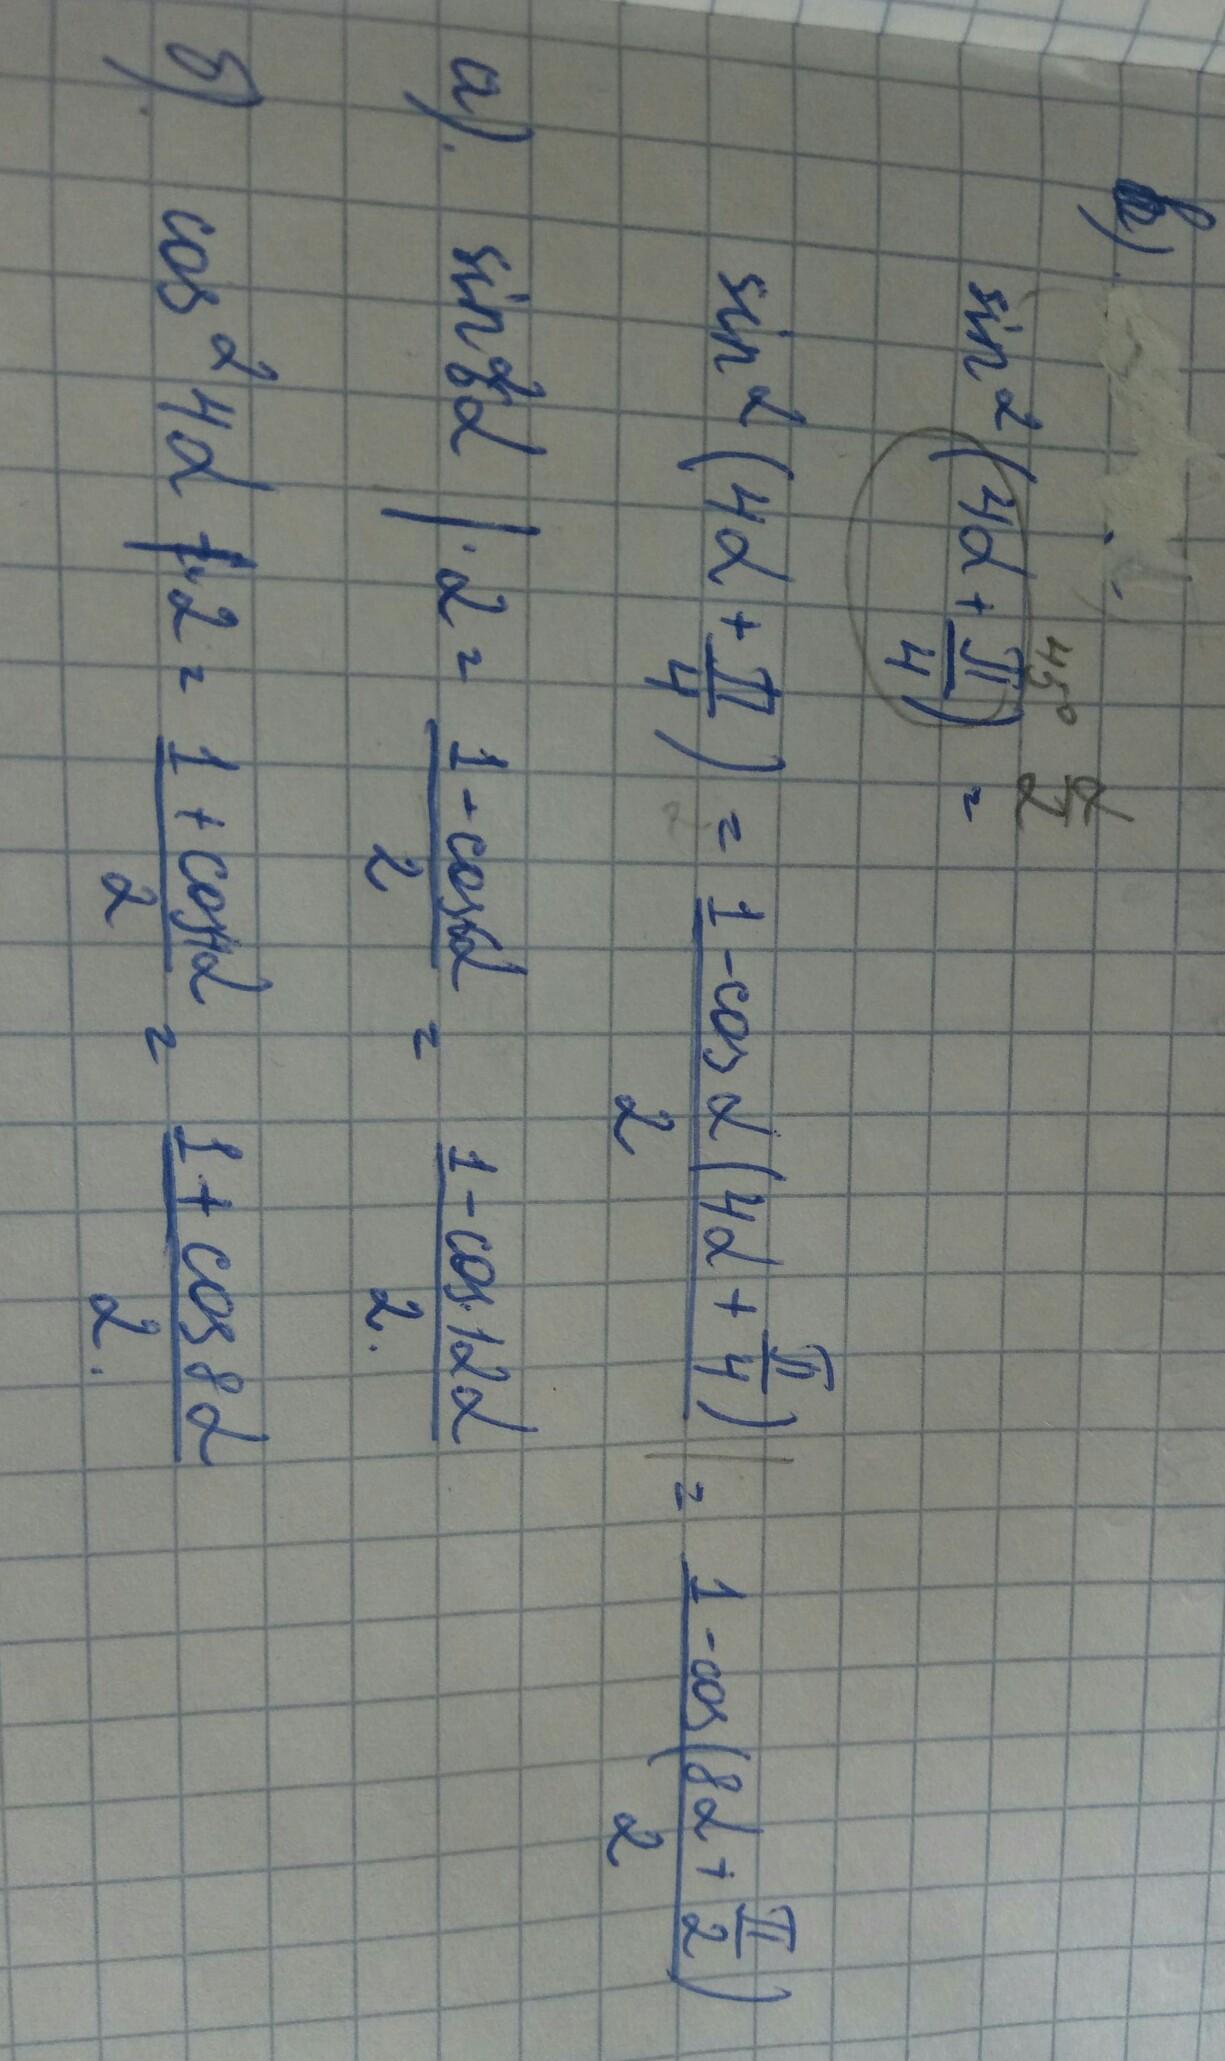 в).
45° α/2
sin²(4α + π/4) =
sin²(4α + π/4) = (1 - cos 2(4α + π/4))/2 = (1 - cos(8α + π/2))/2
а). sin²6α |·2 = (1 - cos α)/2 = (1 - cos 12α)/2.
б). cos²4α |·2 = (1 + cos α)/2 = (1 + cos 8α)/2.